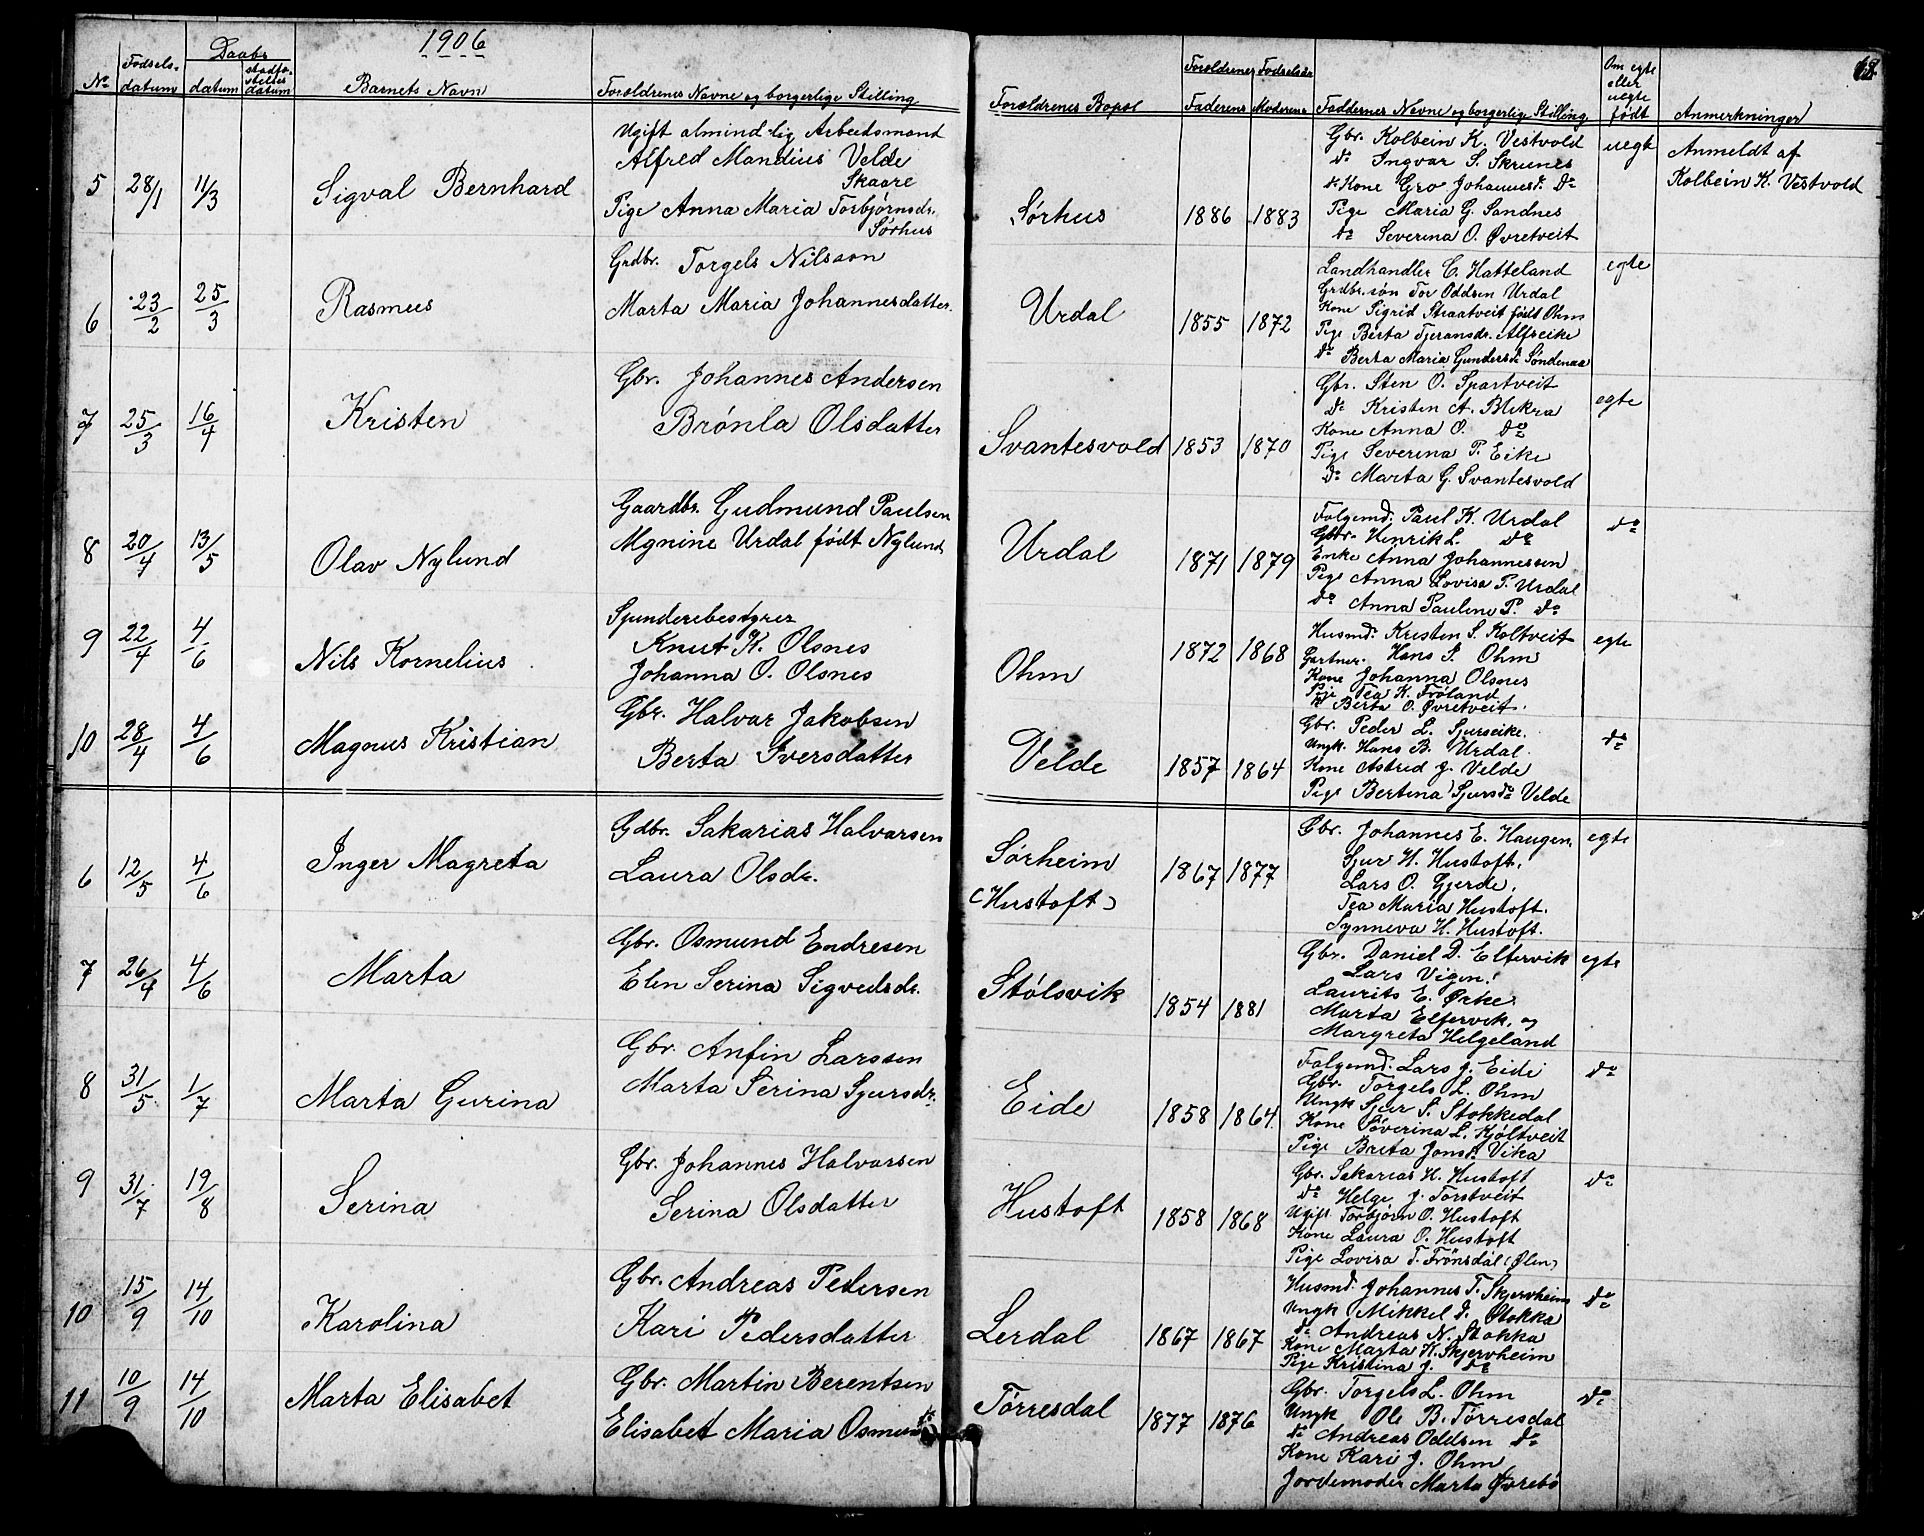 1906
68
No
Fødselsdatum
Daabs
datum
stadfæstelses datum
Barnets Navn
Forældrenes Navne og borgerlige Stilling
Forældrenes Bopæl
Forældrenes Fødselsår
Faderens
Moderens
Faddernes Navne og borgerlige Stilling
Om egte eller uegte født
Anmerkninger
5 28/1 11/3 Sigval Bernhard
Ugift almindelig Arbeidsmand
Alfred Mandius Velde
Skaare
Pige Anna Maria Torbjørnsdr.
Sørhus
Sørhus 1886 1883
Gbr. Kolbein K. Vestvold
do Ingvar S. Skrunes
Kone Gro Johannesd. Do
Pige Maria G. Sandnes
do Severina O. Øvretveit
uegte
Anmeldt af
Kolbein K. Vestvold
6 23/2 25/3 Rasmus
Grdbr. Torgels Nilsson
Marta Maria Johannesdatter.
Urdal 1855 1872
Landhandler C. Hatteland
Grdbr.søn Tor Oddsen Urdal
Kone Sigrid Straatveit født Ohm
Pige Berta Tjeransdr. Alfseike
do Berta Maria Gundersd. Søndenaa
egte
7 25/3 16/4 Kristen
Gbr. Johannes Andersen
Brønla Olsdatter
Svantesvold 1853 1870
Gbr. Sten O. Spartveit
do Kristen A. Blikra
Kone Anna O. do
Pige Severina P. Eike
do Marta G. Svantesvold
egte
8 20/4 13/5 Olav Nylund
Gaardbr. Gudmund Paulsen
Mgnine Urdal født Nylund
Urdal 1871 1879
Folgemd. Paul K. Urdal
Gbr. Henrik L. do
Enke Anna Johannessen
Pige Anna Lovisa P. Urdal
do Anna Pauline P. do
do
9 22/4 4/6 Nils Kornelius
Spunderebestyrer
Knut K. Olsnes
Johanna O. Olsnes
Ohm 1872 1868
Husmd. Kristen S. Koltveit
Gartner. Hans S. Ohm
Kone Johanna Olsnes
Pige Tea K. Frøland
do Berta O. Øvretveit.
egte
10 28/4 4/6 Magnus Kristian
Gbr. Halvar Jakobsen
Berta Iversdatter
Velde 1857 1864
Gbr. Peder L. Sjurseike.
Ungk. Hans B. Urdal.
Kone Astrid J. Velde
Pige Bertina Sjursdr Velde
do
6 12/5 4/6 Inger Magreta
Gdbr. Sakarias Halvarsen
Laura Olsdr.
Sørheim
(Hustoft)
1867 1877
Gbr. Johannes E. Haugen
Sjur H. Hustoft.
Lars O. Gjerde.
Tea Maria Hustoft.
Synneva H. Hustoft.
egte
7 26/4 4/6 Marta
Gbr. Osmund Endresen
Elen Serina Sigvedsdr.
Stølsvik 1854 1881
Gbr. Daniel D. Elfervik
Lars Vigen!
Laurits E. Ørke.
Marta Elfervik. og
Margreta Helgeland
egte
8 31/5 1/7 Marta Gurina
Gbr. Anfin Larssen
Marta Serina Sjursdr.
Eide 1858 1864.
Folgemd. Lars J. Eide
Gbr. Torgels L. Ohm
Ungk Sjur S. Stokkedal
Kone Søverina L. Kjøltveit
Pige Brita Jonsd. Vika
do
9 31/7 19/8 Serina
Gbr. Johannes Halvarsen
Serina Olsdatter
Hustoft 1858 1868
Gbr. Sakarias H. Hustoft
do Helge J. Torstveit
Ugift Torbjørn O. Hustoft
Kone Laura O. Hustoft
Pige Lovisa T. Frønsdal (Ølen)
do
10 15/9 14/10 Karolina
Gbr. Andreas Pedersen
Kari Pedersdatter
Lerdal 1867 1867
Husmd. Johannes T. Skjervheim
Ungk Mikkel D. Stokka
do Andreas N. Stokka
Kone Marta K. Skjervheim
Pige Kristina J. do
do
11 10/9 14/10 Marta Elisabet
Gbr. Martin Berentsen
Elisabet Maria Osmunds
Tørresdal 1877 1876
Gbr. Torgels L. Ohm
Ungk Ole B. Tørresdal
do Andreas Oddsen do
Kone Kari J. Ohm
Jordemoder Marta Øvrebø
do